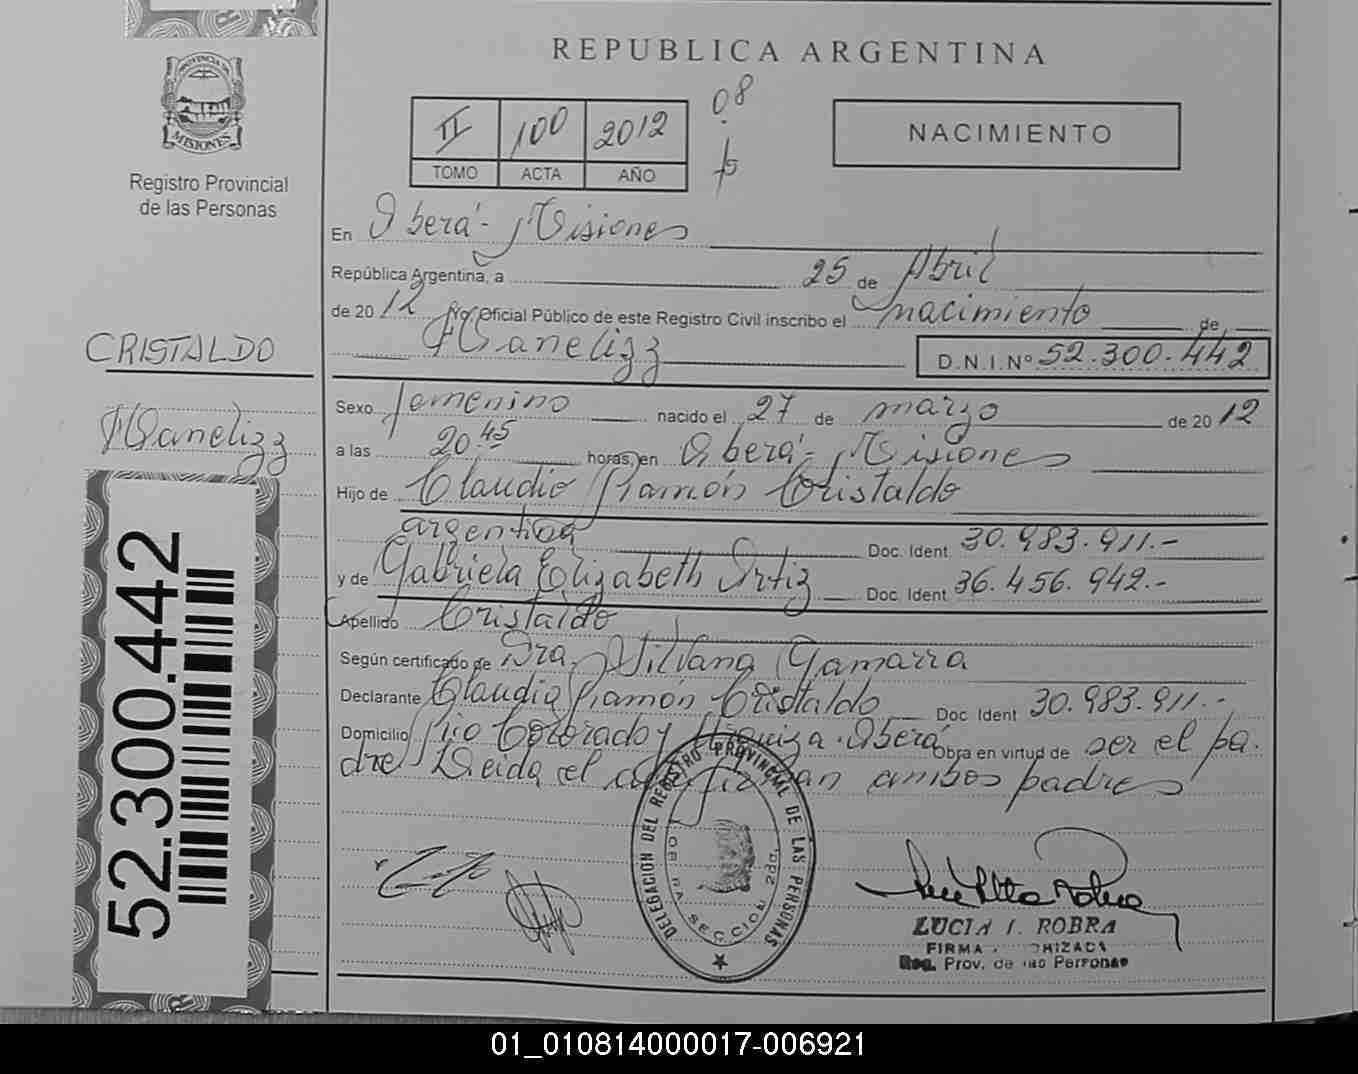 REPUBLICA ARGENTINA
PROVINCIA DE
MISIONES
Registro Provincial
de las Personas
II 100 2012
TOMO ACTA AÑO
08
NACIMIENTO
En Oberá - Misiones
República Argentina, a 25 de Abril
de 2012 Yo, Oficial Público de este Registro Civil inscribo el nacimiento de
Hanelizz D.N.I.Nº 52.300.442
CRISTALDO
Hanelizz
52.300.442
Sexo femenino nacido el 27 de marzo de 2012
a las 20.45 horas, en Oberá - Misiones
Hijo de Claudio Ramón Cristaldo
argentina Doc. Ident 30.983.911.-
y de Gabriela Elizabeth Ortiz Doc. Ident 36.456.942.-
Apellido Cristaldo
Según certificado de Dra. Silvana Gamarra
Declarante Claudio Ramón Cristaldo Doc Ident 30.983.911.-
Domicilio Rio Colorado y Obera Obra en virtud de ser el pa-
dre Leida el acta firman ambos padres
DELEGACION DEL REGISTRO PROVINCIAL DE LAS PERSONAS
OBERA SECCION 2da.
LUCIA I. ROBRA
FIRMA AUTORIZADA
Reg. Prov. de las Personas
01_010814000017-006921